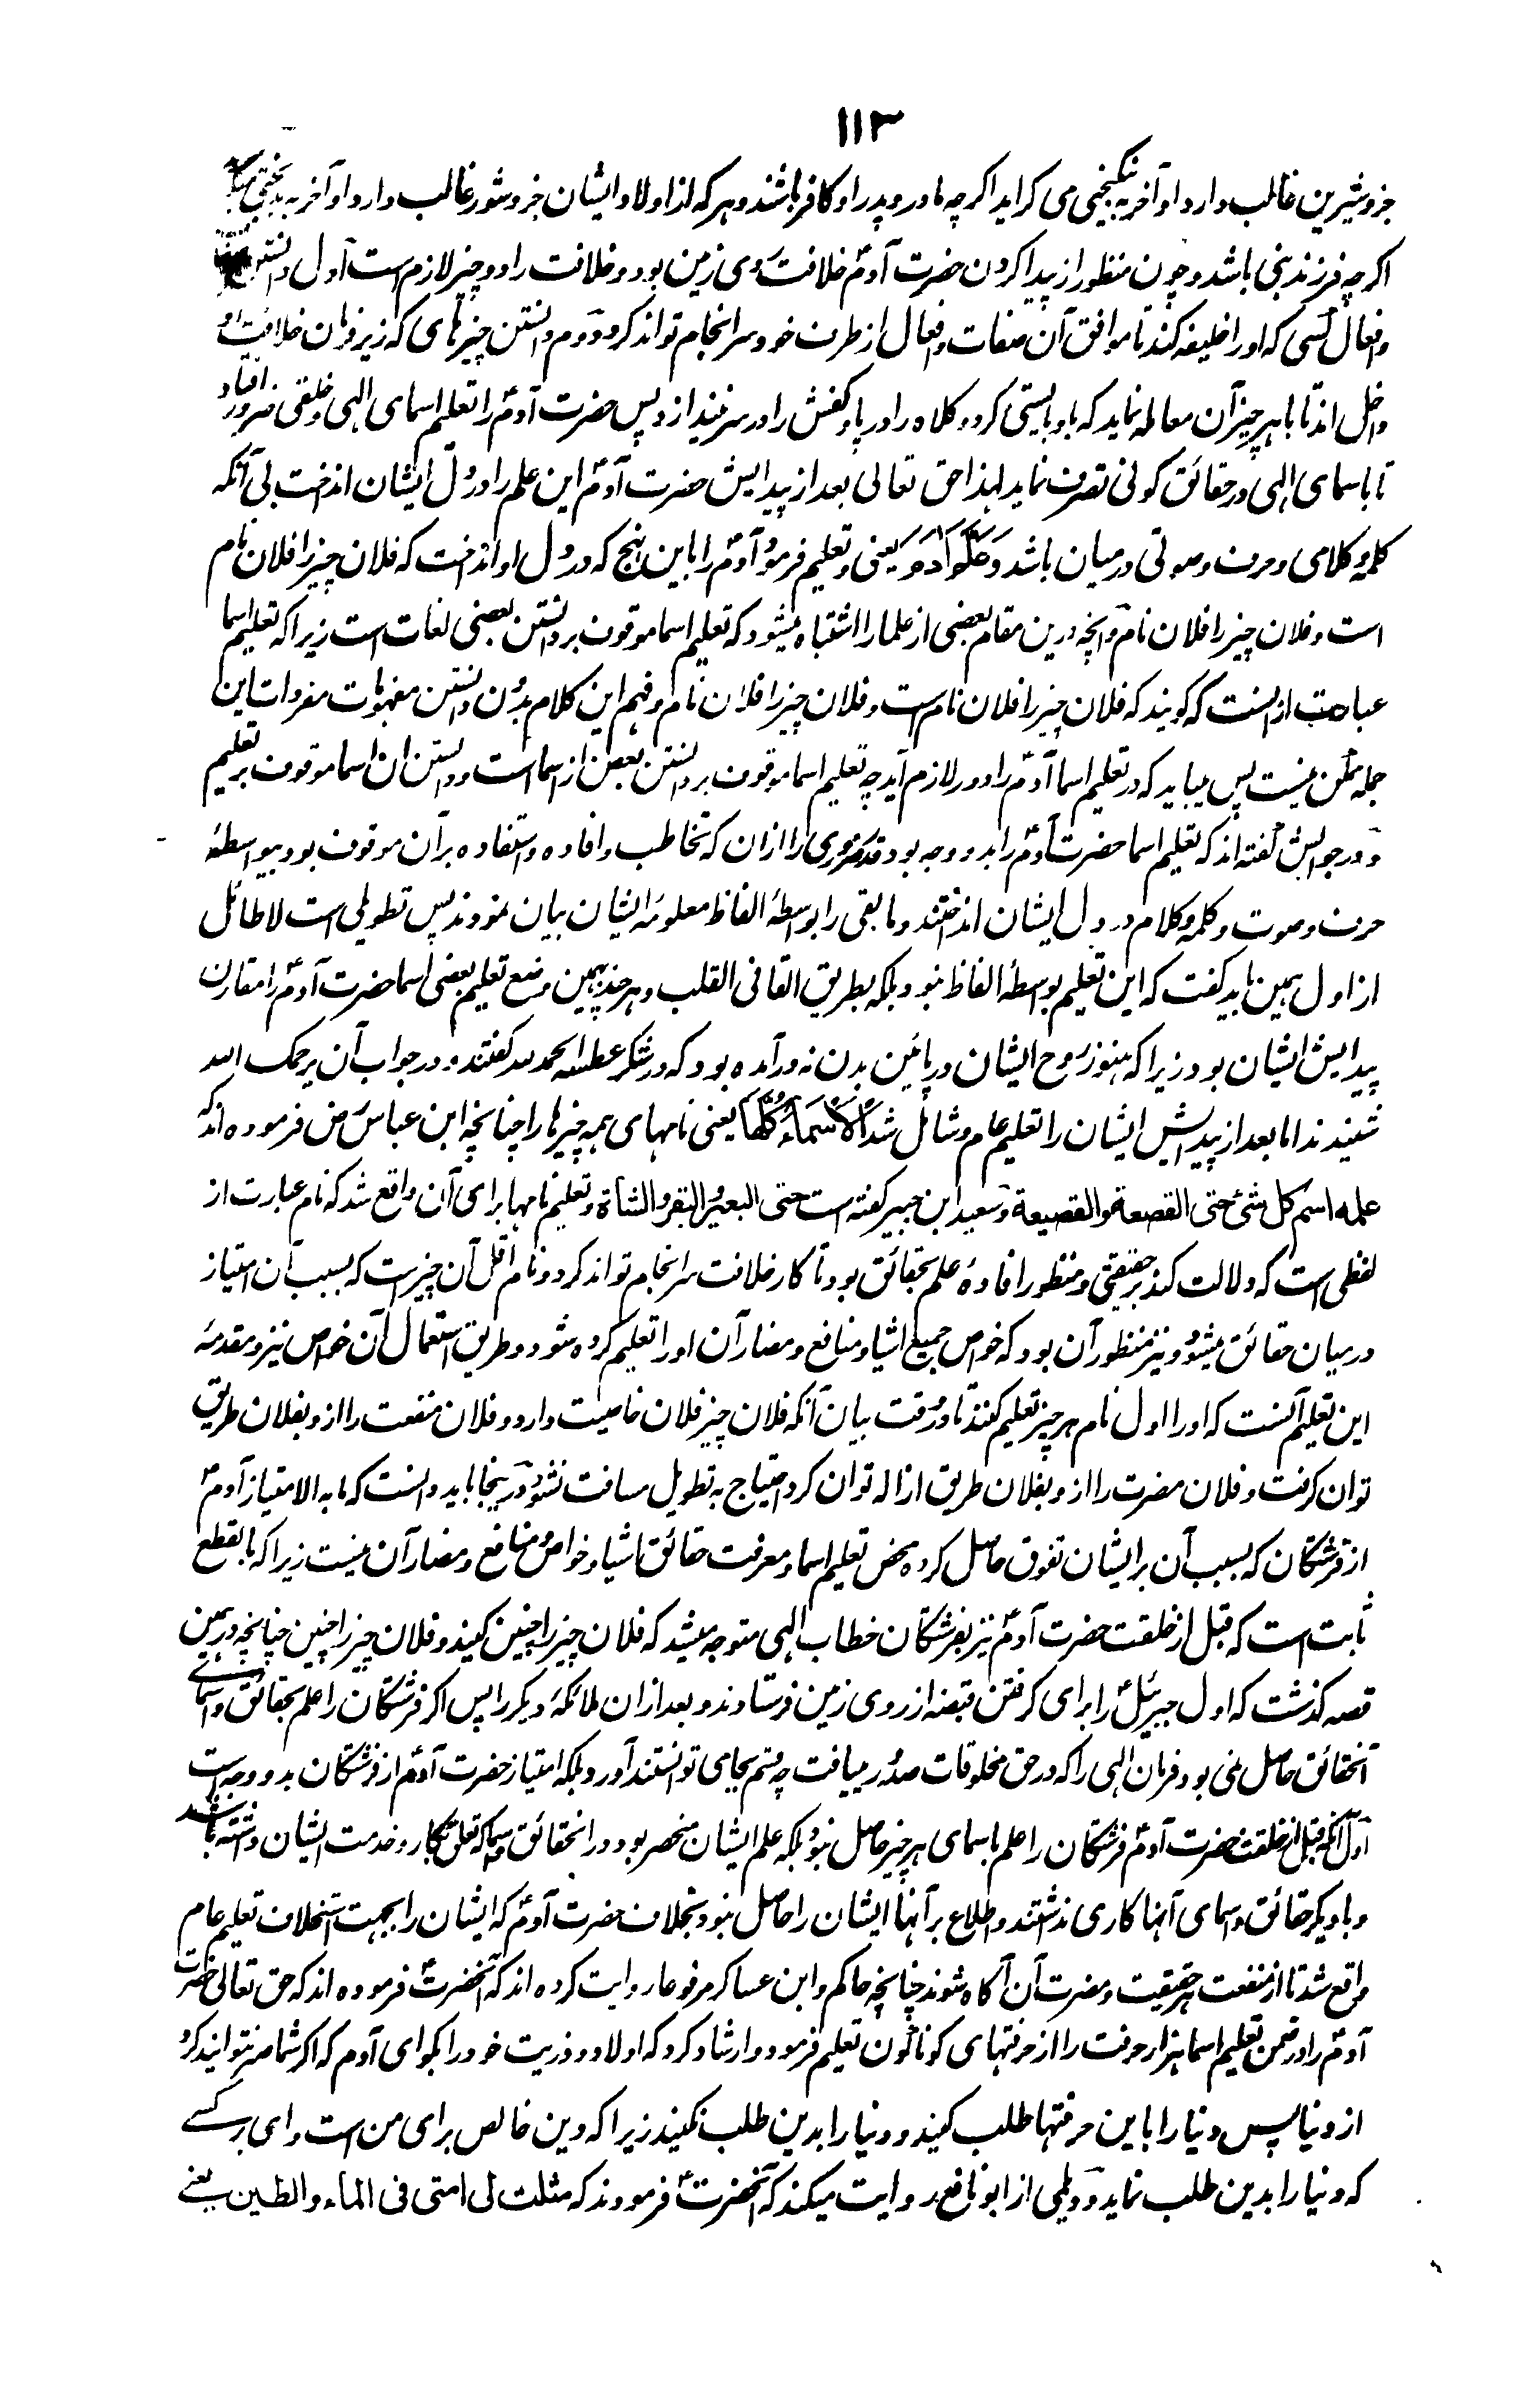 ۱۱۳
جزو شیرین غالب دارد او آخر به نیکبختی می گراید اگرچه مادر و پدر او کافر باشند و هر که از اولاد ایشان جزو شور غالب دارد او آخر به بدبختی
اگرچه فرزند نبی باشد و چون منظور از پیدا کردن حضرت آدمؑ خلافت روی زمین بود و خلافت را دو چیز لازم است اول دانستن صفات
و افعال کسی که او را خلیفه کند تا موافق آن صفات و افعال از طرف خود سرانجام تواند کرد دوم دانستن چیزهای که زیر فرمان خلافت او
داخل اند تا با هر چیز آن معامله نماید که باو بایستی کرد و کلاه را در پا و کفش را در سر نیندازد پس حضرت آدمؑ را تعلیم اسمای الهی و خلقی ضرور افتاد
تا باسمای الهی در حقائق کونی تصرف نماید لهذا حق تعالی بعد از پیدایش حضرت آدمؑ این علم را در دل ایشان انداخت بی آنکه
کلمه و کلامی و حرف و صوتی درمیان باشد وَعَلَّمَ آدَمَ یعنی و تعلیم فرمود آدمؑ را باین نهج که در دل او انداخت که فلان چیز را فلان نام
است و فلان چیز را فلان نام و آنچه درین مقام بعضی از علما را اشتباه میشود که تعلیم اسما موقوف بر دانستن بعضی لغات است زیرا که تعلیم اسما
عبارت از انست که گویند که فلان چیز را فلان نام است و فلان چیز را فلان نام و فهم این کلام بدون دانستن مفهومات مفردات این
جمله ممکن نیست پس میباید که در تعلیم اسما آدمؑ را دور لازم آید چه تعلیم اسما موقوف بر دانستن بعض از اسما است و دانستن ان اسما موقوف بر تعلیم
و در جوابش گفته اند که تعلیم اسما حضرت آدمؑ را بدو وجه بود قدر ضروری را ازان که تخاطب و افاده و استفاده بر آن موقوف بود بیواسطهٔ
حرف و صوت و کلمه و کلام در دل ایشان انداختند و مابقی را بواسطهٔ الفاظ معلومهٔ ایشان بیان نمودند پس تطویلی است لاطائل
از اول همین باید گفت که این تعلیم بواسطهٔ الفاظ نبود بلکه بطریق القا فی القلب و هرچند بهمین وضع تعلیم بعضی اسما حضرت آدمؑ را مقارن
پیدایش ایشان بود زیرا که هنوز روح ایشان در پائین بدن نه درآمده بود که در شکر عطسه الحمد لله گفتند و در جواب آن یرحمک الله
شنیدند اما بعد از پیدایش ایشان را تعلیم عام و شامل شد الْأَسْمَاءَ كُلَّهَا یعنی نامهای همه چیزها را چنانچه ابن عباس رض فرموده اند که
علمه اسم کل شئ حتی القصعة والقصیعة و سعید ابن جبیر گفته است حتی البعیر والبقر والشاة و تعلیم نامها برای آن واقع شد که نام عبارت از
لفظی است که دلالت کند بر حقیقتی و منظور افادهٔ علم بحقائق بود تا کار خلافت سرانجام تواند کرد و نام اقل آن چیز است که بسبب آن امتیاز
درمیان حقائق میشود و نیز منظور آن بود که خواص جمیع اشیا و منافع و مضار آن او را تعلیم کرده شود و طریق استعمال آن خواص نیز و مقدمهٔ
این تعلیم آنست که او را اول نام هر چیز تعلیم کنند تا در وقت بیان آنکه فلان چیز فلان خاصیت دارد و فلان منفعت را از و بفلان طریق
توان گرفت و فلان مضرت را از و بفلان طریق ازاله توان کرد احتیاج به تطویل مسافت نشود درینجا باید دانست که مابه الامتیاز آدمؑ
از فرشتگان که بسبب آن بر ایشان تفوق حاصل کرده محض تعلیم اسما و معرفت حقائق اشیا و خواص و منافع و مضار آن نیست زیرا که بالقطع
ثابت است که قبل از خلقت حضرت آدمؑ نیز بفرشتگان خطاب الهی متوجه میشد که فلان چیز را چنین کنید و فلان چیز را چنین چنانچه درهمین
قصه گذشت که اول جبرئیلؑ را برای گرفتن قبضه از روی زمین فرستادند و بعد ازان ملائکهٔ دیگر را پس اگر فرشتگان را علم بحقائق و اسمای
آنحقائق حاصل نمی بود فرمان الهی را که در حق مخلوقات صدور مییافت چه قسم بجا می توانستند آورد بلکه امتیاز حضرت آدمؑ از فرشتگان بدو وجه است
اول آنکه قبل از خلقت حضرت آدمؑ فرشتگان را علم باسمای هر چیز حاصل نبود بلکه علم ایشان منحصر بود در انحقائق و اسما که تعلق بکار و خدمت ایشان داشته باشد
و با دیگر حقائق و اسمای آنها کاری نداشتند و اطلاع بر آنها ایشان را حاصل نبود بخلاف حضرت آدمؑ که ایشان را بجهت استخلاف تعلیم عام
واقع شد تا از منفعت هر حقیقت و مضرت آن آگاه شوند چنانچه حاکم و ابن عساکر مرفوعا روایت کرده اند که آنحضرتؐ فرموده اند که حق تعالی حضرت
آدمؑ را در ضمن تعلیم اسما هزار حرفت را از حرفتهای گوناگون تعلیم فرمود و ارشاد کرد که اولاد و ذریت خود را بگو ای آدم که اگر شما صبر نتوانید کرد
از دنیا پس دنیا را باین حرفتها طلب کنید و دنیا را بدین طلب نکنید زیرا که دین خالص برای من است وای بر کسے
که دنیا را بدین طلب نماید و دیلمی از ابو نافع روایت میکند که آنحضرتؐ فرمودند که مثلت لی امتی فی الماء والطین یعنے